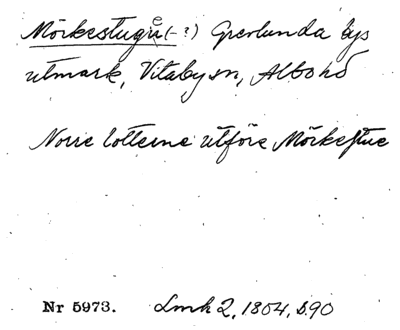 Mörkestugu (-?) Grevlunda bys
utmark, Vitaby sn, Albo hd
Norre lotterne utföre Mörkestue
Nr 5973. Lmh 2, 1804, s. 90